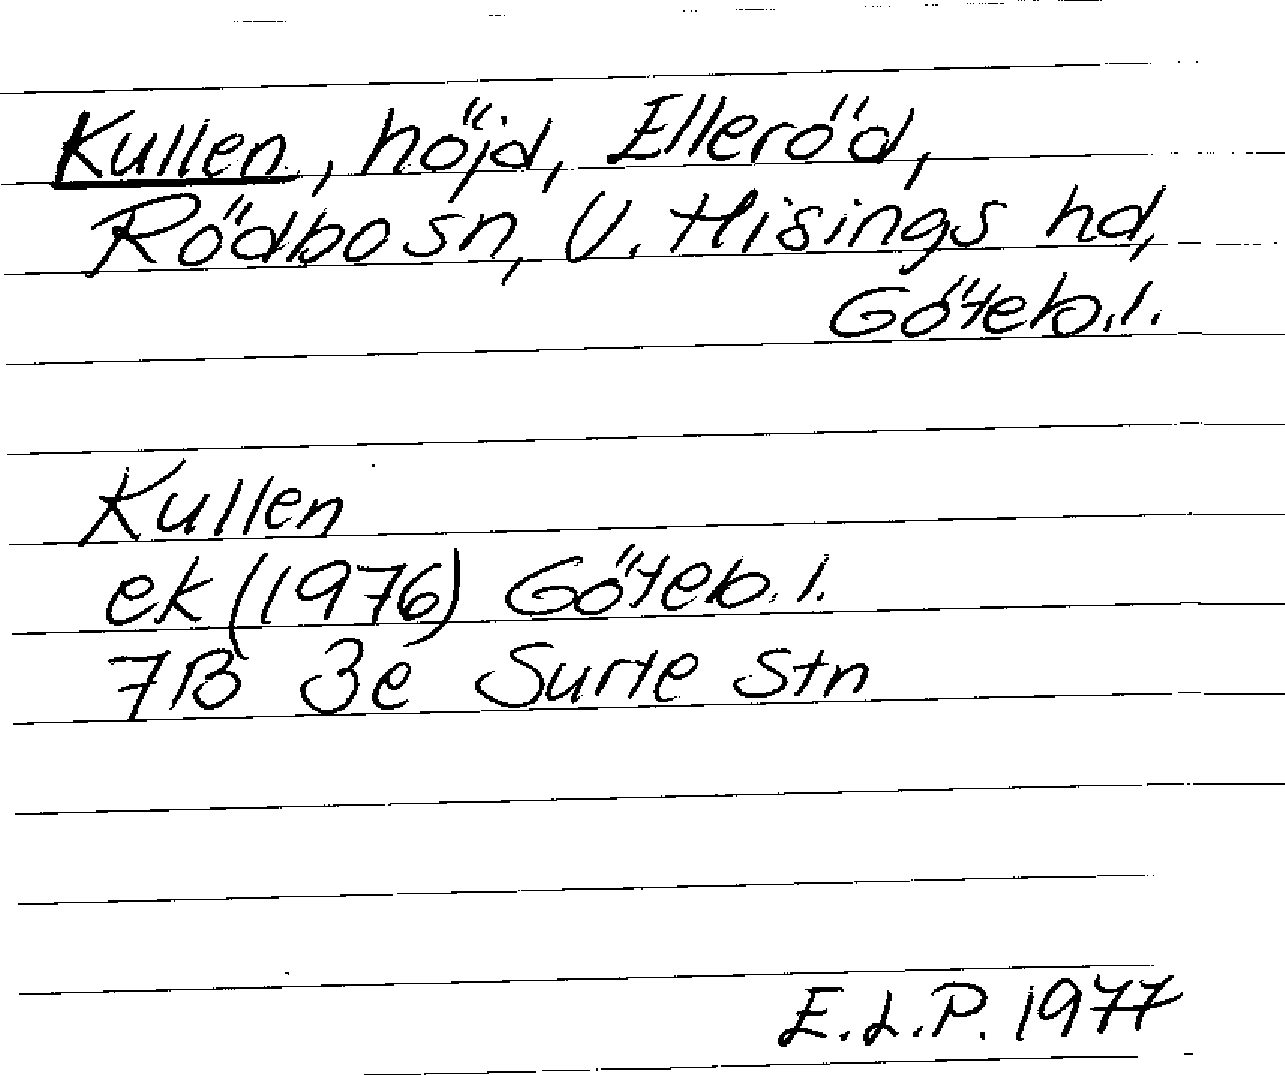 Kullen, höjd, Elleröd,
Rödbo sn, V. Hisings hd,
Göteb.l.
Kullen
ek (1976) Göteb. l.
7B 3e Surte stn
E.L.P. 1977